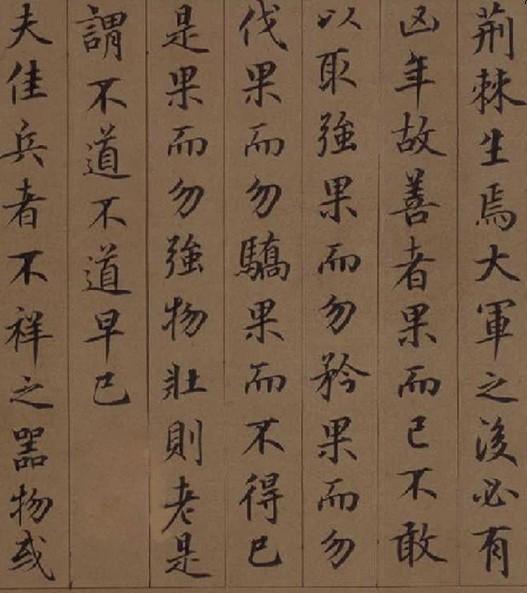 荆棘生焉大軍之後必有
凶年故善者果而已不敢
以取強果而勿矜果而勿
伐果而勿驕果而不得已
是果而勿強物壯則老是
謂不道不道早已
夫佳兵者不祥之器物或